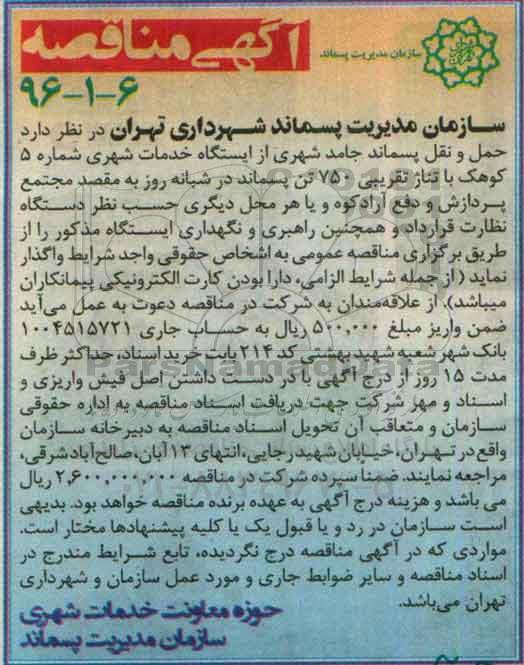 آگهی مناقصه
سازمان مدیریت پسماند
۹۶-۱-۶
سازمان مدیریت پسماند شهرداری تهران در نظر دارد
حمل و نقل پسماند جامد شهری از ایستگاه خدمات شهری شماره ۵
کوهک با تناژ تقریبی ۷۵۰ تن پسماند در شبانه روز به مقصد مجتمع
پردازش و دفع آرادکوه و یا هر محل دیگری حسب نظر دستگاه
نظارت قرارداد و همچنین راهبری و نگهداری ایستگاه مذکور را از
طریق برگزاری مناقصه عمومی به اشخاص حقوقی واجد شرایط واگذار
نماید (از جمله شرایط الزامی، دارا بودن کارت الکترونیکی پیمانکاران
میباشد)، از علاقه‌مندان به شرکت در مناقصه دعوت به عمل می‌آید
ضمن واریز مبلغ ۵۰۰,۰۰۰ ریال به حساب جاری ۱۰۰۴۵۱۵۷۲۱
بانک شهر شعبه شهید بهشتی کد ۲۱۴ بابت خرید اسناد، حداکثر ظرف
مدت ۱۵ روز از درج آگهی با در دست داشتن اصل فیش واریزی و
اسناد و مهر شرکت جهت دریافت اسناد مناقصه به اداره حقوقی
سازمان و متعاقب آن تحویل اسناد مناقصه به دبیرخانه سازمان
واقع در تهران، خیابان شهید رجایی، انتهای ۱۳ آبان، صالح‌آباد شرقی،
مراجعه نمایند. ضمنا سپرده شرکت در مناقصه ۲,۶۰۰,۰۰۰,۰۰۰ ریال
می باشد و هزینه درج آگهی به عهده برنده مناقصه خواهد بود. بدیهی
است سازمان در رد و یا قبول یک یا کلیه پیشنهادها مختار است.
مواردی که در آگهی مناقصه درج نگردیده، تابع شرایط مندرج در
اسناد مناقصه و سایر ضوابط جاری و مورد عمل سازمان و شهرداری
تهران می‌باشد.
حوزه معاونت خدمات شهری
سازمان مدیریت پسماند
ParsNamadData